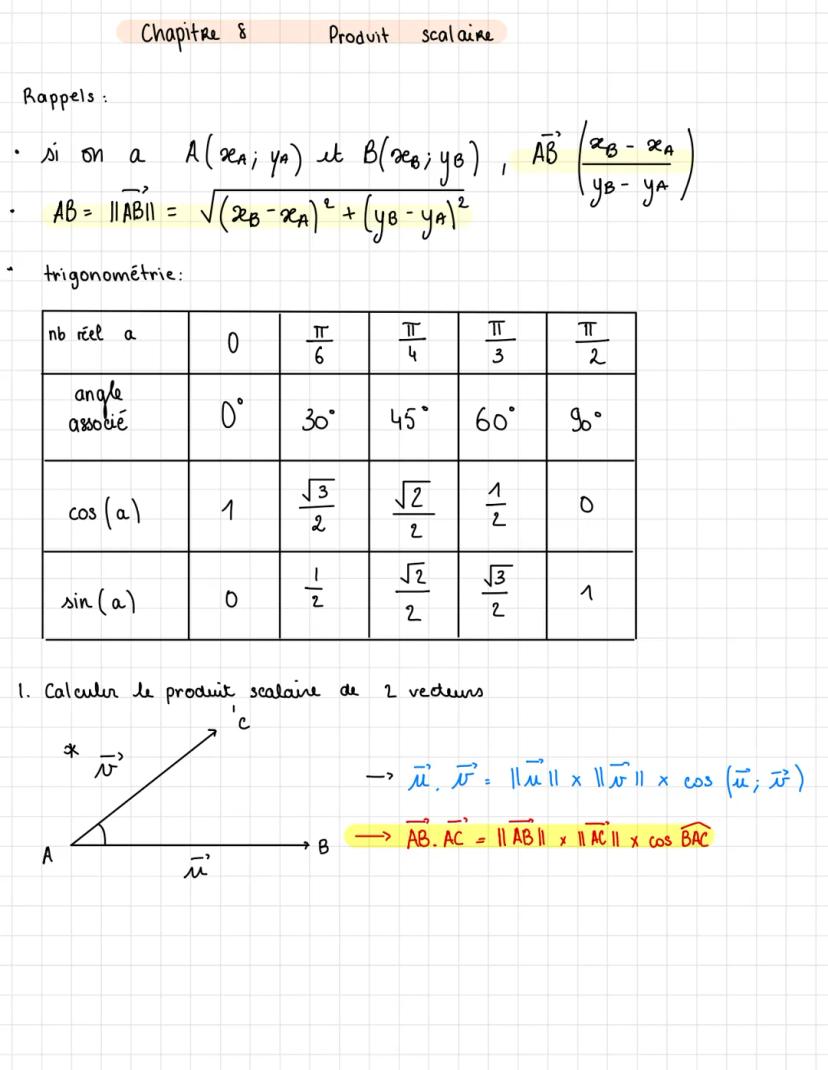 Chapitre 8 Produit scalaire
Rappels :
• si on a A(xA ; yA) et B(xB ; yB) , AB→ (xB - xA / yB - yA)
• AB = ||AB→|| = √(xB - xA)² + (yB - yA)²
• trigonométrie :
nb réel a 0 π/6 π/4 π/3 π/2
angle
associé 0° 30° 45° 60° 90°
cos(a) 1 √3/2 √2/2 1/2 0
sin(a) 0 1/2 √2/2 √3/2 1
1. Calculer le produit scalaire de 2 vecteurs
C
* v→
→ u→ . v→ = ||u→|| × ||v→|| × cos (u→ ; v→)
A B → AB→ . AC→ = ||AB→|| × ||AC→|| × cos BAC^
u→